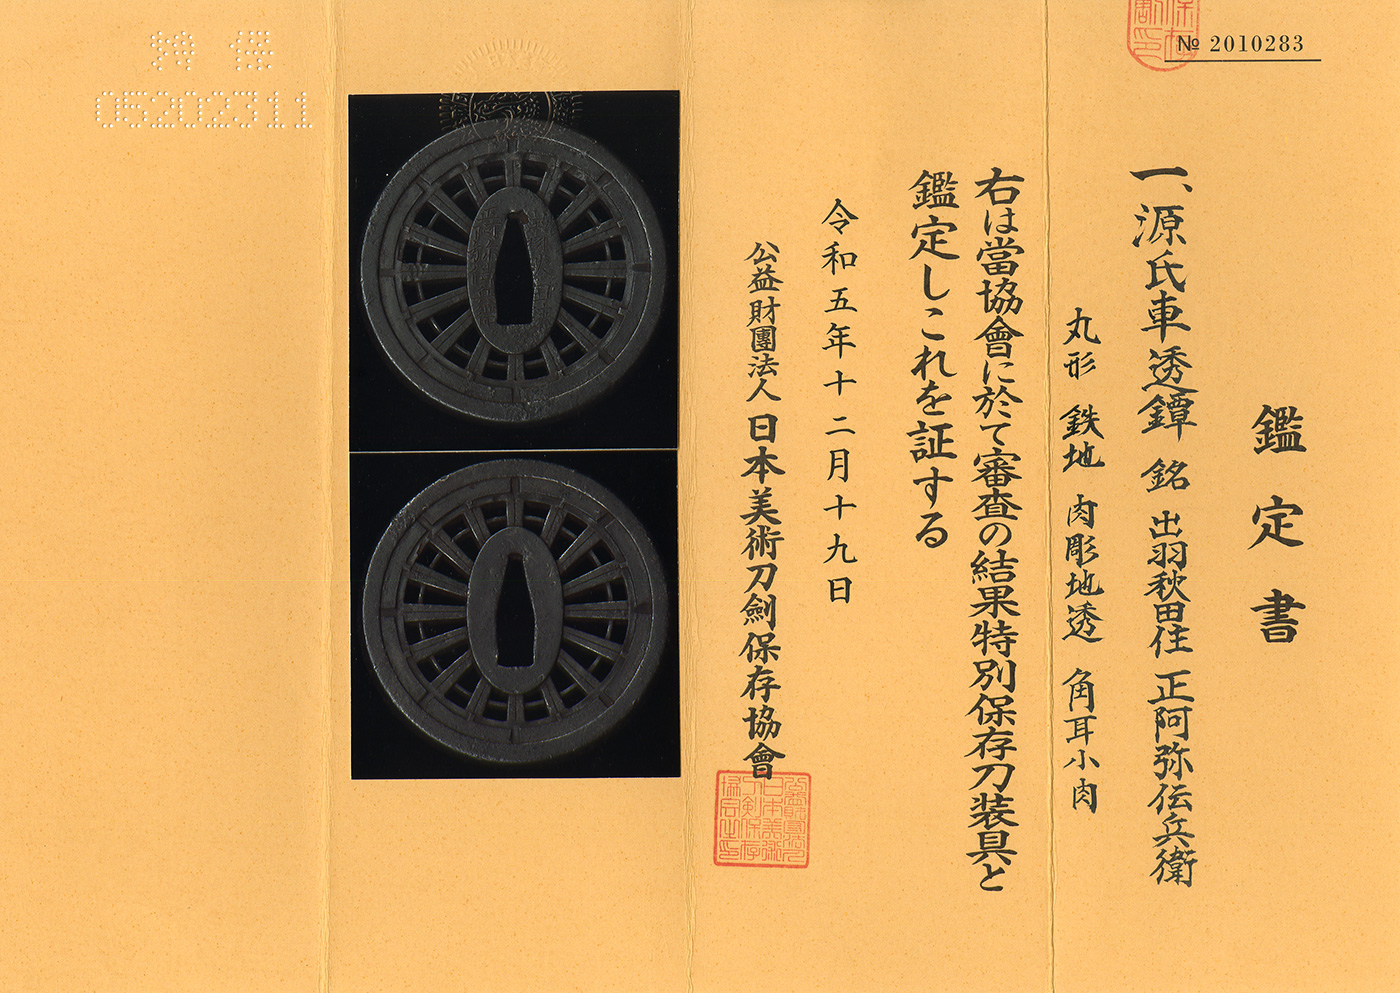 № 2010283
鑑定書
一、源氏車透鐔 銘 出羽秋田住 正阿弥伝兵衛
丸形 鉄地 肉彫地透 角耳小肉
右は當協會に於て審査の結果特別保存刀装具と
鑑定しこれを証する
令和五年十二月十九日
公益財團法人 日本美術刀劍保存協會
05202311